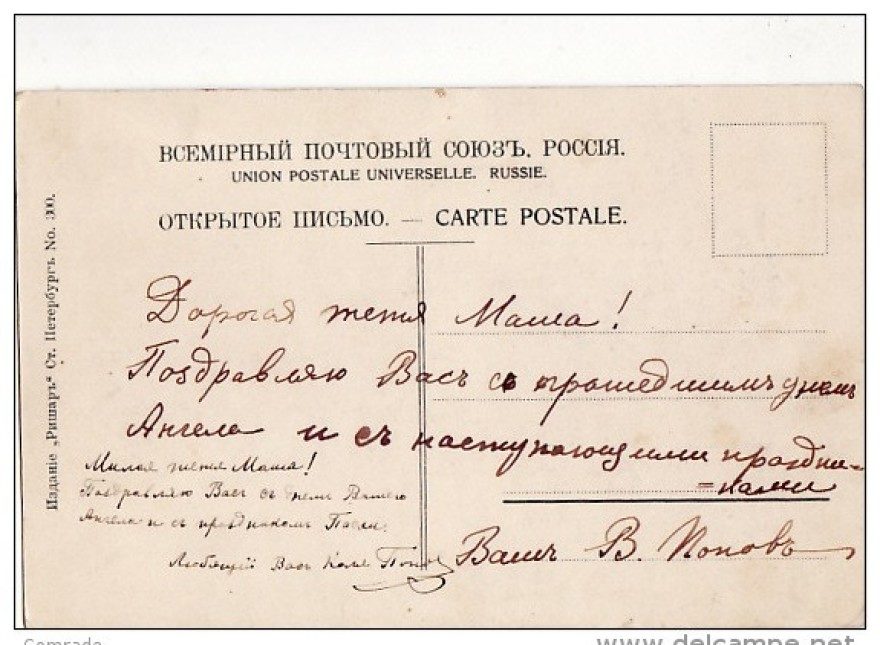 ВСЕМІРНЫЙ ПОЧТОВЫЙ СОЮЗЪ. РОССІЯ.
UNION POSTALE UNIVERSELLE. RUSSIE.
ОТКРЫТОЕ ПИСЬМО. — CARTE POSTALE.
Изданіе „Ришаръ“ Ст. Петербургъ No. 300.
Дорогая тетя Маша!
Поздравляю Васъ съ прошедшимъ днемъ
Ангела и съ наступающими праздни-
=ками
Вашъ В. Поповъ
Милая тетя Маша!
Поздравляю Васъ съ днемъ Вашего
Ангела и съ праздникомъ Пасхи.
Любящій Васъ Коля Попов
Comrade
www.delcampe.net